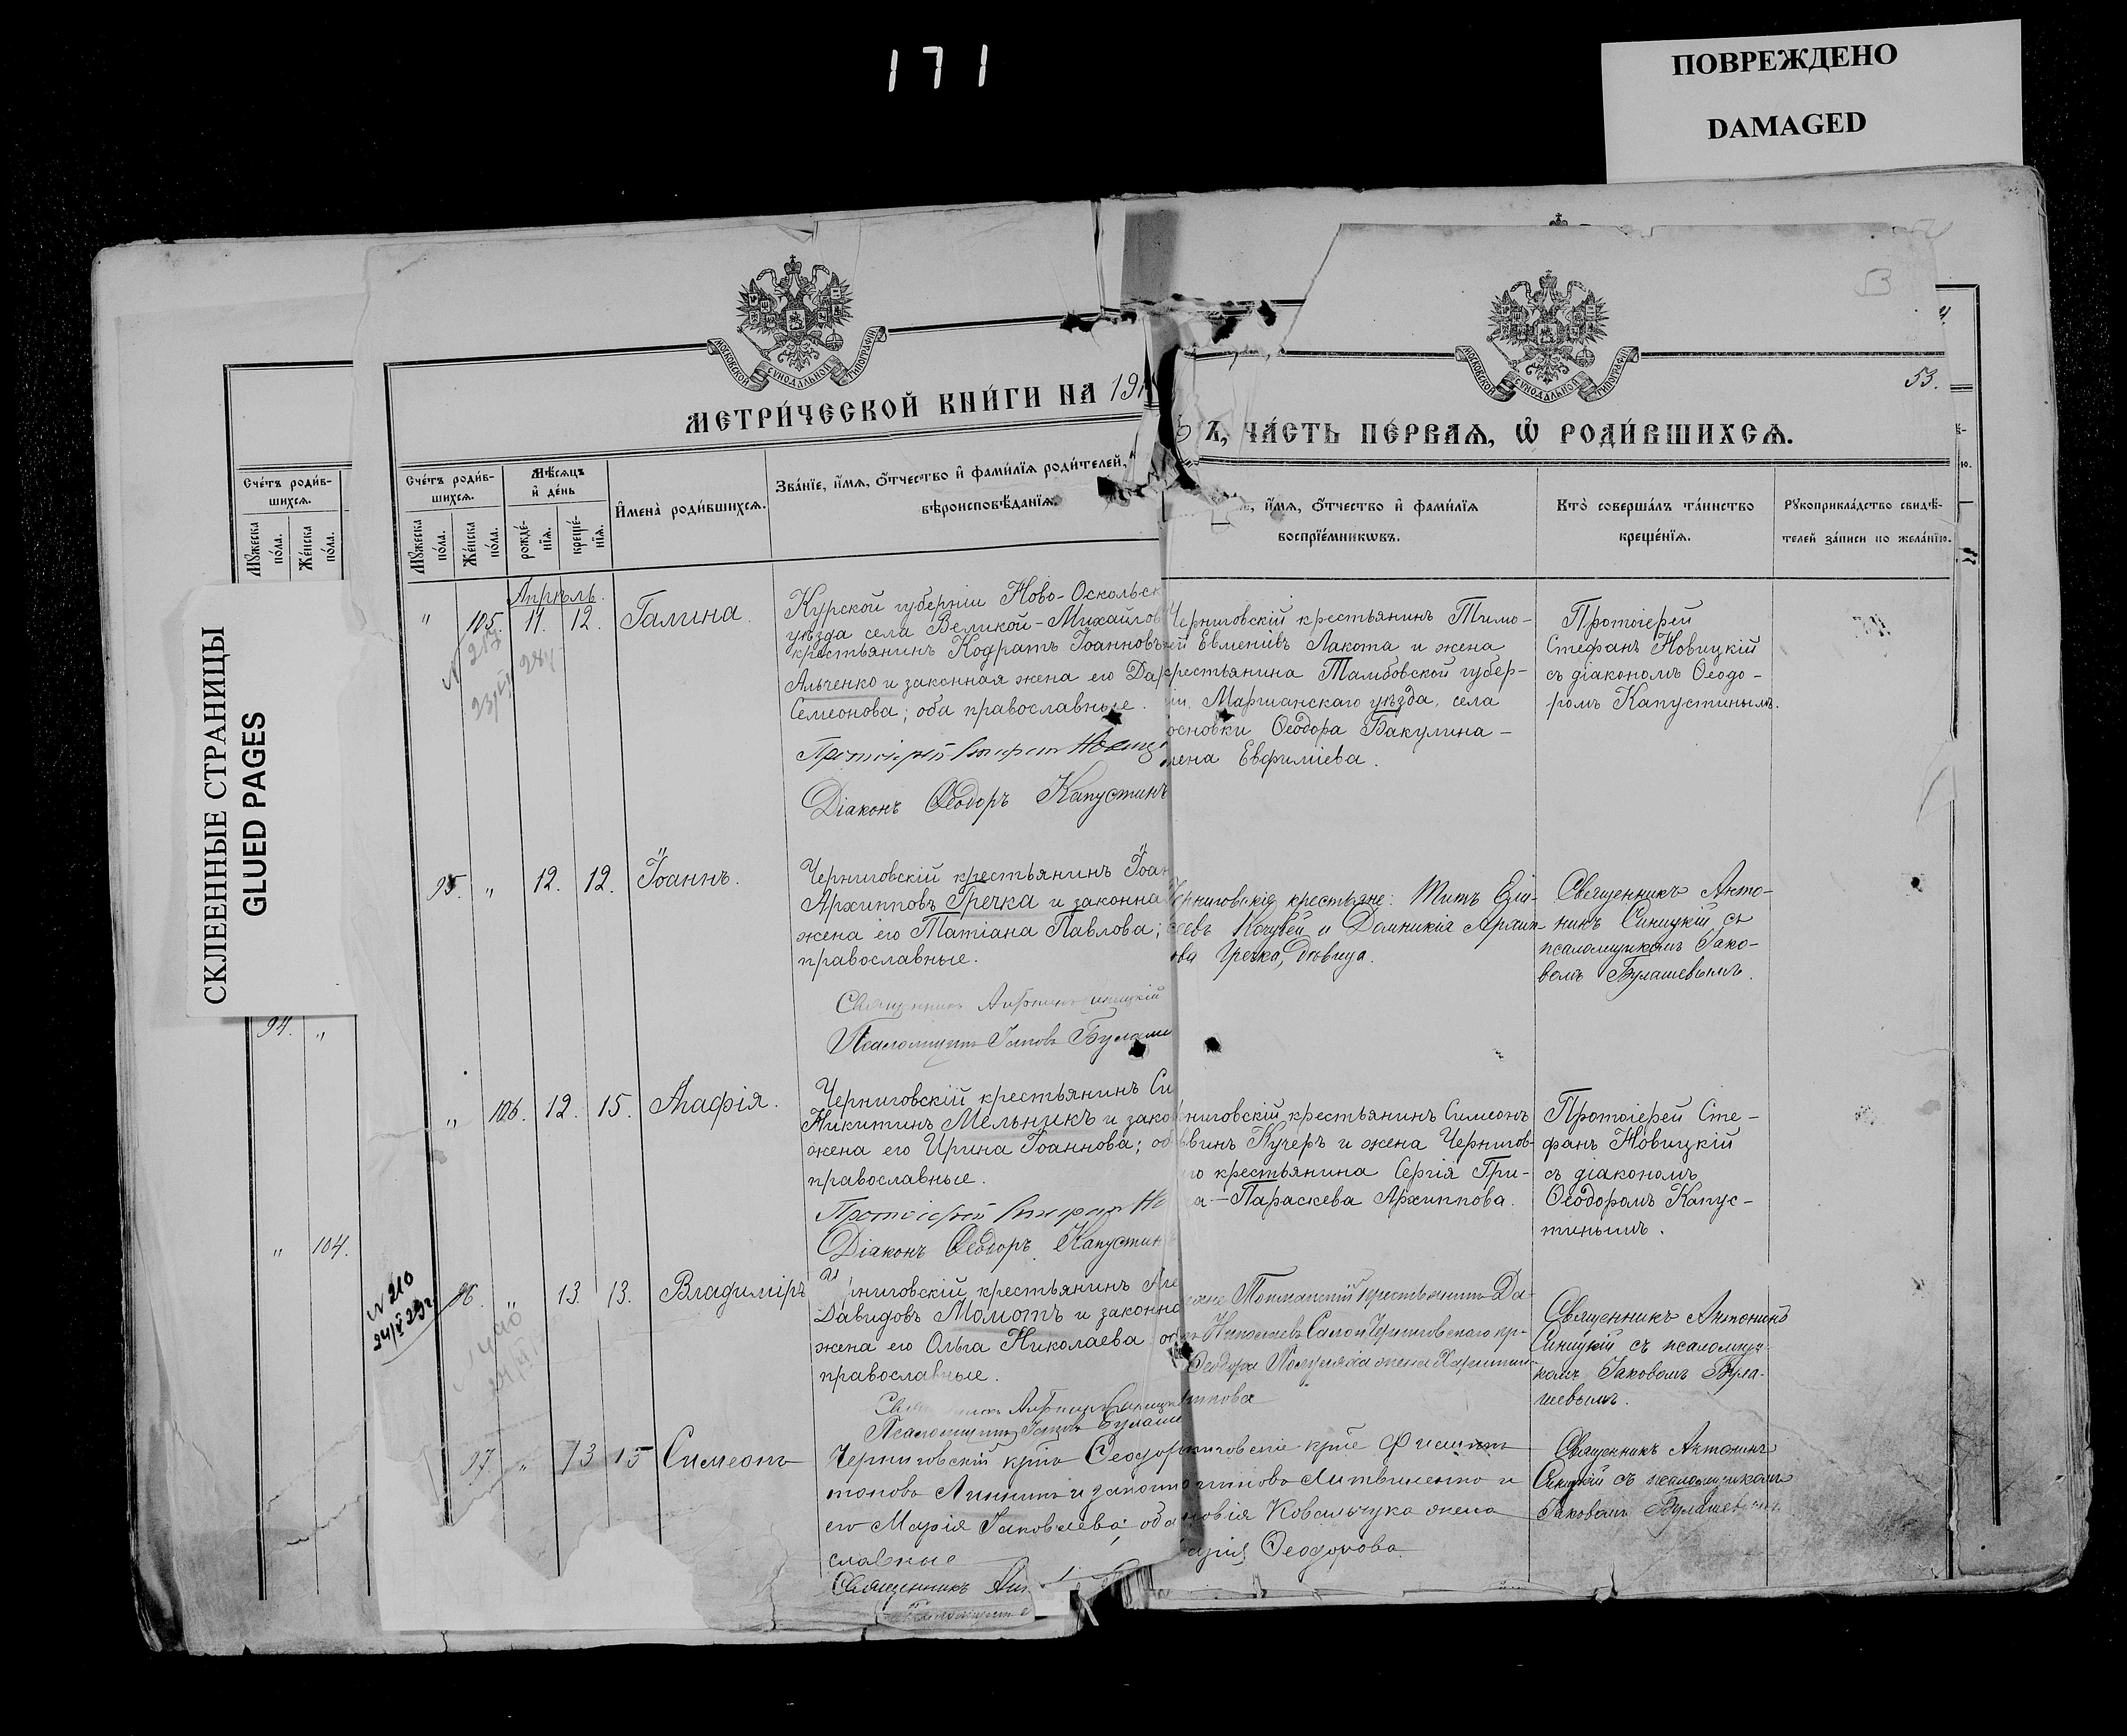 171
ПОВРЕЖДЕНО
DAMAGED
СКЛЕЕННЫЕ СТРАНИЦЫ
GLUED PAGES
МОСКОВСКОЙ СѴНОДАЛЬНОЙ ТИПОГРАФІИ
МОСКОВСКОЙ СѴНОДАЛЬНОЙ ТИПОГРАФІИ
53
53.
МЕТРИ́ЧЕСКОЙ КНИ́ГИ НА 191
ЧА́СТЬ ПЕ́РВАѦ, Ѡ҆ РОДИ́ВШИХСѦ.
Сче́тъ роди́в-
шихсѧ.
Мꙋ́жеска
по́ла.
Же́нска
по́ла.
Сче́тъ роди́в-
шихсѧ.
Мꙋ́жеска
по́ла.
Же́нска
по́ла.
Мѣ́сѧцъ
и҆ де́нь
рожде́-
нїѧ.
креще́-
нїѧ.
И҆мена̀ роди́вшихсѧ.
Зва́нїе, и҆́мѧ, ѻ҆́тчество и҆ фами́лїѧ роди́телей,
вѣроисповѣ́данїѧ.
и҆́мѧ, ѻ҆́тчество и҆ фами́лїѧ
воспрїе́мникѡвъ.
Кто̀ соверша́лъ та́инство
креще́нїѧ.
Рꙋкоприкла́дство свидѣ́-
телей за́писи по жела́нїю.
94. „
„ 104.
Апрѣль.
„ 105. 11. 12. Галина.
Курской губерніи Ново-Оскольск
уѣзда села Великой-Михайлов
крестьянинъ Кодратъ Іоанновъ
Альченко и законная жена его Дар
Семеонова; оба православные.
Протоіерей Стефанъ Новиц
Діаконъ Ѳеодоръ Капустинъ
Черниговскій крестьянинъ Тимо-
ѳей Евменіевъ Лакота и жена
крестьянина Тамбовской губер-
ніи, Маршанскаго уѣзда, села
основки Ѳеодора Бакулина -
лена Евфиміева.
Протоіерей
Стефанъ Новицкій
съ діакономъ Ѳеодо-
ромъ Капустинымъ.
95. „ 12. 12. Іоаннъ.
Черниговскій крестьянинъ Іоан
Архипповъ Гречка и законна
жена его Татіана Павлова;
православные.
Священникъ Антонинъ Синицкій
Псаломщикъ Іаковъ Булаше
Черниговскіе крестьяне: Титъ Ели-
сеевъ Кочубей и Домникія Архип-
ова Гречка, дѣвица.
Священникъ Анто-
нинъ Синицкій съ
псаломщикомъ Іако-
вомъ Булашевымъ.
„ 106. 12. 15. Агафія.
Черниговскій крестьянинъ Си
Никитинъ Мельникъ и зако
жена его Ирина Іоаннова; об
православные.
Протоіерей Стефанъ Но
Діаконъ Ѳеодоръ Капустин
ниговскій крестьянинъ Симеонъ
ввинъ Кучеръ и жена Чернигов-
го крестьянина Сергія Гри-
а - Параскева Архиппова.
Протоіерей Сте-
фанъ Новицкій
съ діакономъ
Ѳеодоромъ Капус-
тинымъ.
N 210
24/X 29г
96. „ 13. 13. Владиміръ
Черниговскій крестьянинъ Але
Давидовъ Момотъ и законна
жена его Ольга Николаева об
православные.
Священникъ Антонинъ Синицк
Псаломщикъ Іаковъ Булаше
крестьянинъ Да-
Черниговскаго кр-
Ѳеодора жена Харитин
иппова
Священникъ Антонинъ
Синицкій съ псаломщи-
комъ Іаковомъ Була-
шевымъ.
97 „ 13 15 Симеонъ
Черниговскій кр-нъ Ѳеодоръ
его Марія Іаковлева; оба
славные
Священникъ Ан
Литвиненко и
новія Ковальчука жена
арія Ѳеодорова.
Священникъ Антонинъ
Синицкій съ псаломщикомъ
Іаковомъ Булашевымъ.